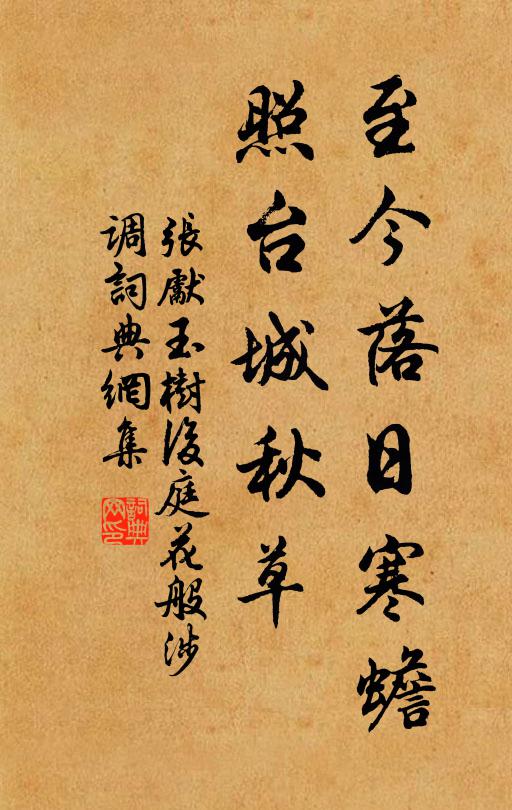 至今落日寒蟾
照台城秋草
張獻玉樹後庭花般涉
调詞典網集
詞典
网印